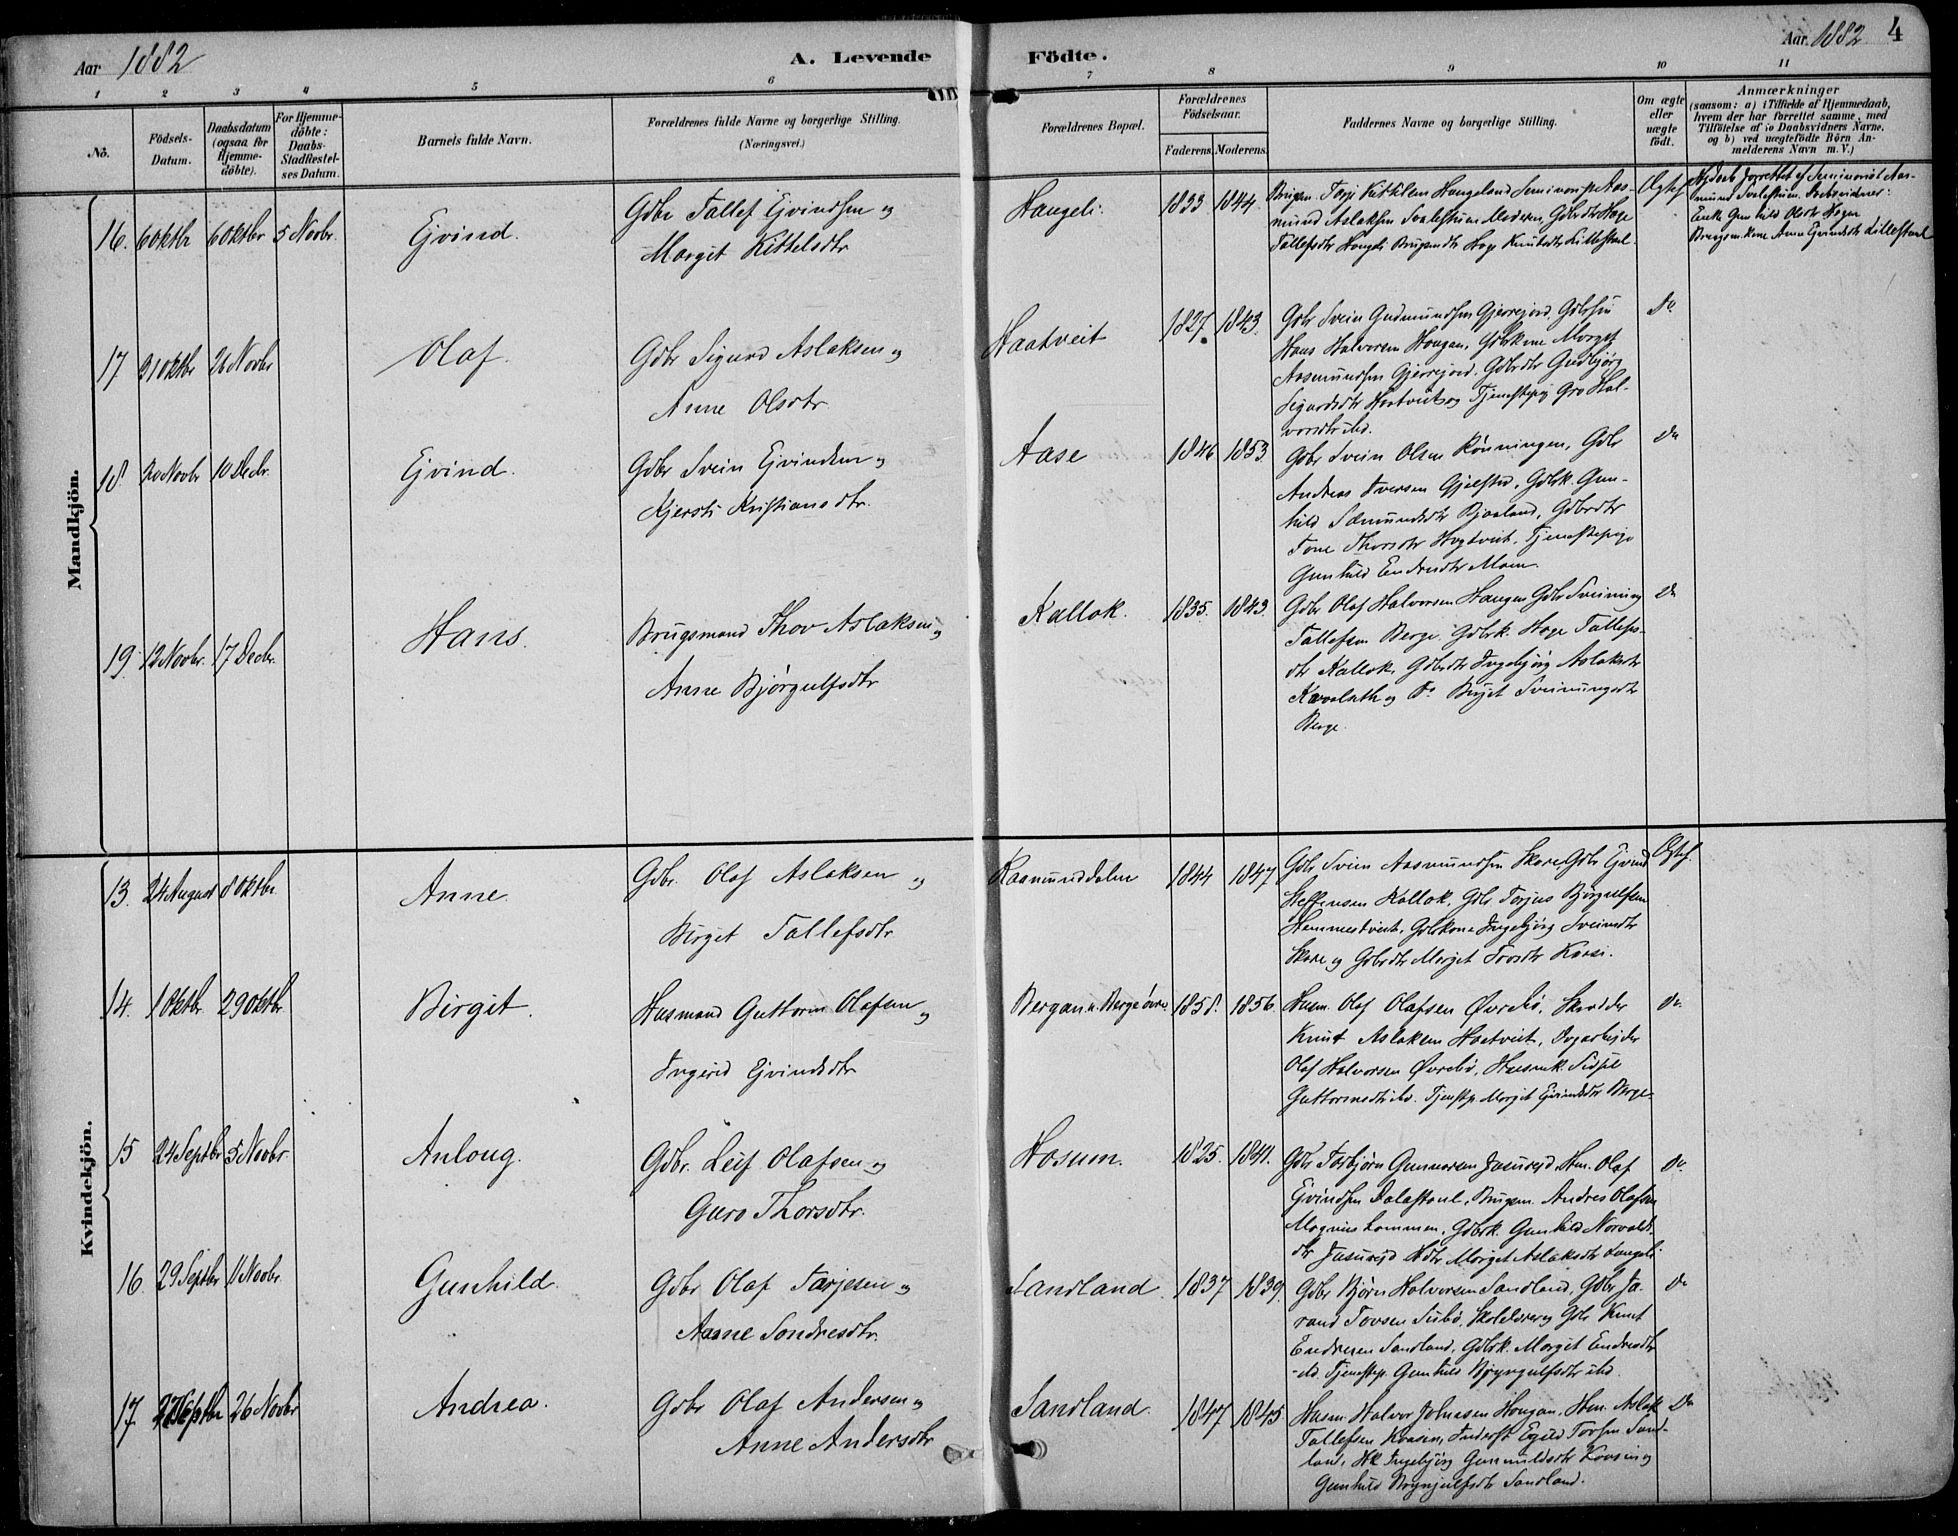 Aar 1882
A. Levende
Födte.
Aar 1882
4
1 2 3 4 5 6 7 8 9 10 11
Nö.
Födsels-
Datum.
Daabsdatum
(ogsaa for
Hjemme-
döbte).
For Hjemme-
döbte:
Daabs-
Stadfæstel-
ses Datum.
Barnets fulde Navn.
Forældrenes fulde Navne og borgerlige Stilling.
(Næringsvei.)
Forældrenes Bopæl.
Forældrenes
Födselsaar.
Faderens. Moderens.
Faddernes Navne og borgerlige Stilling.
Om ægte
eller
uægte
født.
Anmærkninger
(saasom: a) i Tilfælde af Hjemmedaab,
hvem der har forrettet samme, med
Tilföielse af to Daabsvidners Navne,
og b) ved uægtefödte Börn An-
melderens Navn m. V.)
Mandkjön.
16. 6 Oktbr 6 Oktbr 5 Novbr. Ejvind.
Gdbr Tallef Ejvindsen og
Margit Kittelsdtr
Haugeli. 1833 1844.
Tallefsdtr
17 21 Oktbr 26 Novbr Olaf.
Gdbr Sigurd Aslaksen og
Anne Olsdtr
Haatveit 1827. 1843.
Gdbr Svein Gudmundsen Gjerrejord, Gdbrsøn
Hans Halvorsen Haugan, Gdbrkone Morget
Aasmundsen Gjerrejord. Gdbrdtr Gudbjørg
Sigurdsdtr Haatveit og Tjenestepig Gro Hal-
vorsdtr ibd.
Do
18. 20 Novbr 10 Decbr. Ejvind.
Gdbr Svein Ejvindsen og
Kjersti Kristiansdtr.
Aase 1846 1853
Gdbr Svein Olsen Rönningen, Gdbr
Andreas Iversen Gjelstad, Gdbk. Gun-
hild Sæmundsdtr Bjaaland, Gdbrdtr
Tone Thorsdtr Hogtveit, Tjenestepige
Gunhild Endresdtr Moen.
Do
19. 12 Novbr. 17 Decbr. Hans.
Brugsmand Thov Aslaksen og
Anne Bjørgulfsdtr
Kallok. 1835. 1843.
Gdbr Olaf Halvorsen Haugen Gdbr Sveinung
Tallefsen Berge. Gdbrk. Hæge Tallefs-
dtr Kallok, Gdbrdtr Ingebjørg Aslaksdtr
og Do Birgit Sveinungsdtr
Berge.
Do
Kvindekjön.
13. 24 August 8 Oktbr. Anne.
Gdbr. Olaf Aslaksen og
Birget Tallefsdtr
Raamunddalen 1844 1847
Gdbr Svein Aasmundsen Skore Gdbr Ejvind
Steffensen Kallok, Gdbr Torjus Bjørgulfsen
Hemmestveit, Gdbkone Ingebjørg Sveinsdtr
Skore og Gdbrdtr Morget Torsdtr Kaasi.
14. 1 Oktbr 29 Oktbr. Birgit.
Husmand Guttorm Olafsen og
Ingerid Ejvindsdtr
Bergan u. Berge övre 1858. 1856.
Husm. Olaf Olafsen Øvrebö, Skrædder
Knut Aslaksen Haatveit, Dagarbejder
Olaf Halvorsen Øvrebö, Husmk. Sissel
Guttormsdtr ibd. Tjenstp. Morgit Ejvindsdtr Berge.
Do.
15 24 Septbr 5 Novbr Anlaug.
Gdbr. Leif Olafsen og
Guro Thorsdtr.
Hosum. 1825. 1841.
Gdbr Torbjörn Gunnarsen Jasurejd Hm. Olaf
Ejvindsen Dalastaul, Brugsm. Andres Olafsen
Mogens Lommen, Gdbrk. Gunhild Norvald-
dtr Jasurejd Hdtr Morget Aslaksdtr Langeli.
Do.
16. 29 Septbr 11 Novbr. Gunhild.
Gdbr Olaf Tarjesen og
Anne Sondresdtr.
Sandland. 1837 1839.
Gdbr Bjørn Halvorsen Sandland, Gdbr Ja-
rand Tovsen Sisbö, Skolelærer og Gdbr Knut
Endresen Sandland, Gdbk. Morgit Endresdtr
ibd. Tjenestep. Gunhild Brynjulfsdtr ibd.
Do
17. 27 Septbr 26 Novbr Andrea.
Gdbr Olaf Andersen og
Anne Andersdtr
Sandland. 1847 1845
Husm. Halvor Johnsen Haugan, Hm. Aslak
Tallefsen Kaasin, Inderst Egild Torsen Sand-
land, Hk Ingebjørg Gunnuldsdtr Kaasin og
Gunhild Brynjulfsdtr Sandland.
Do